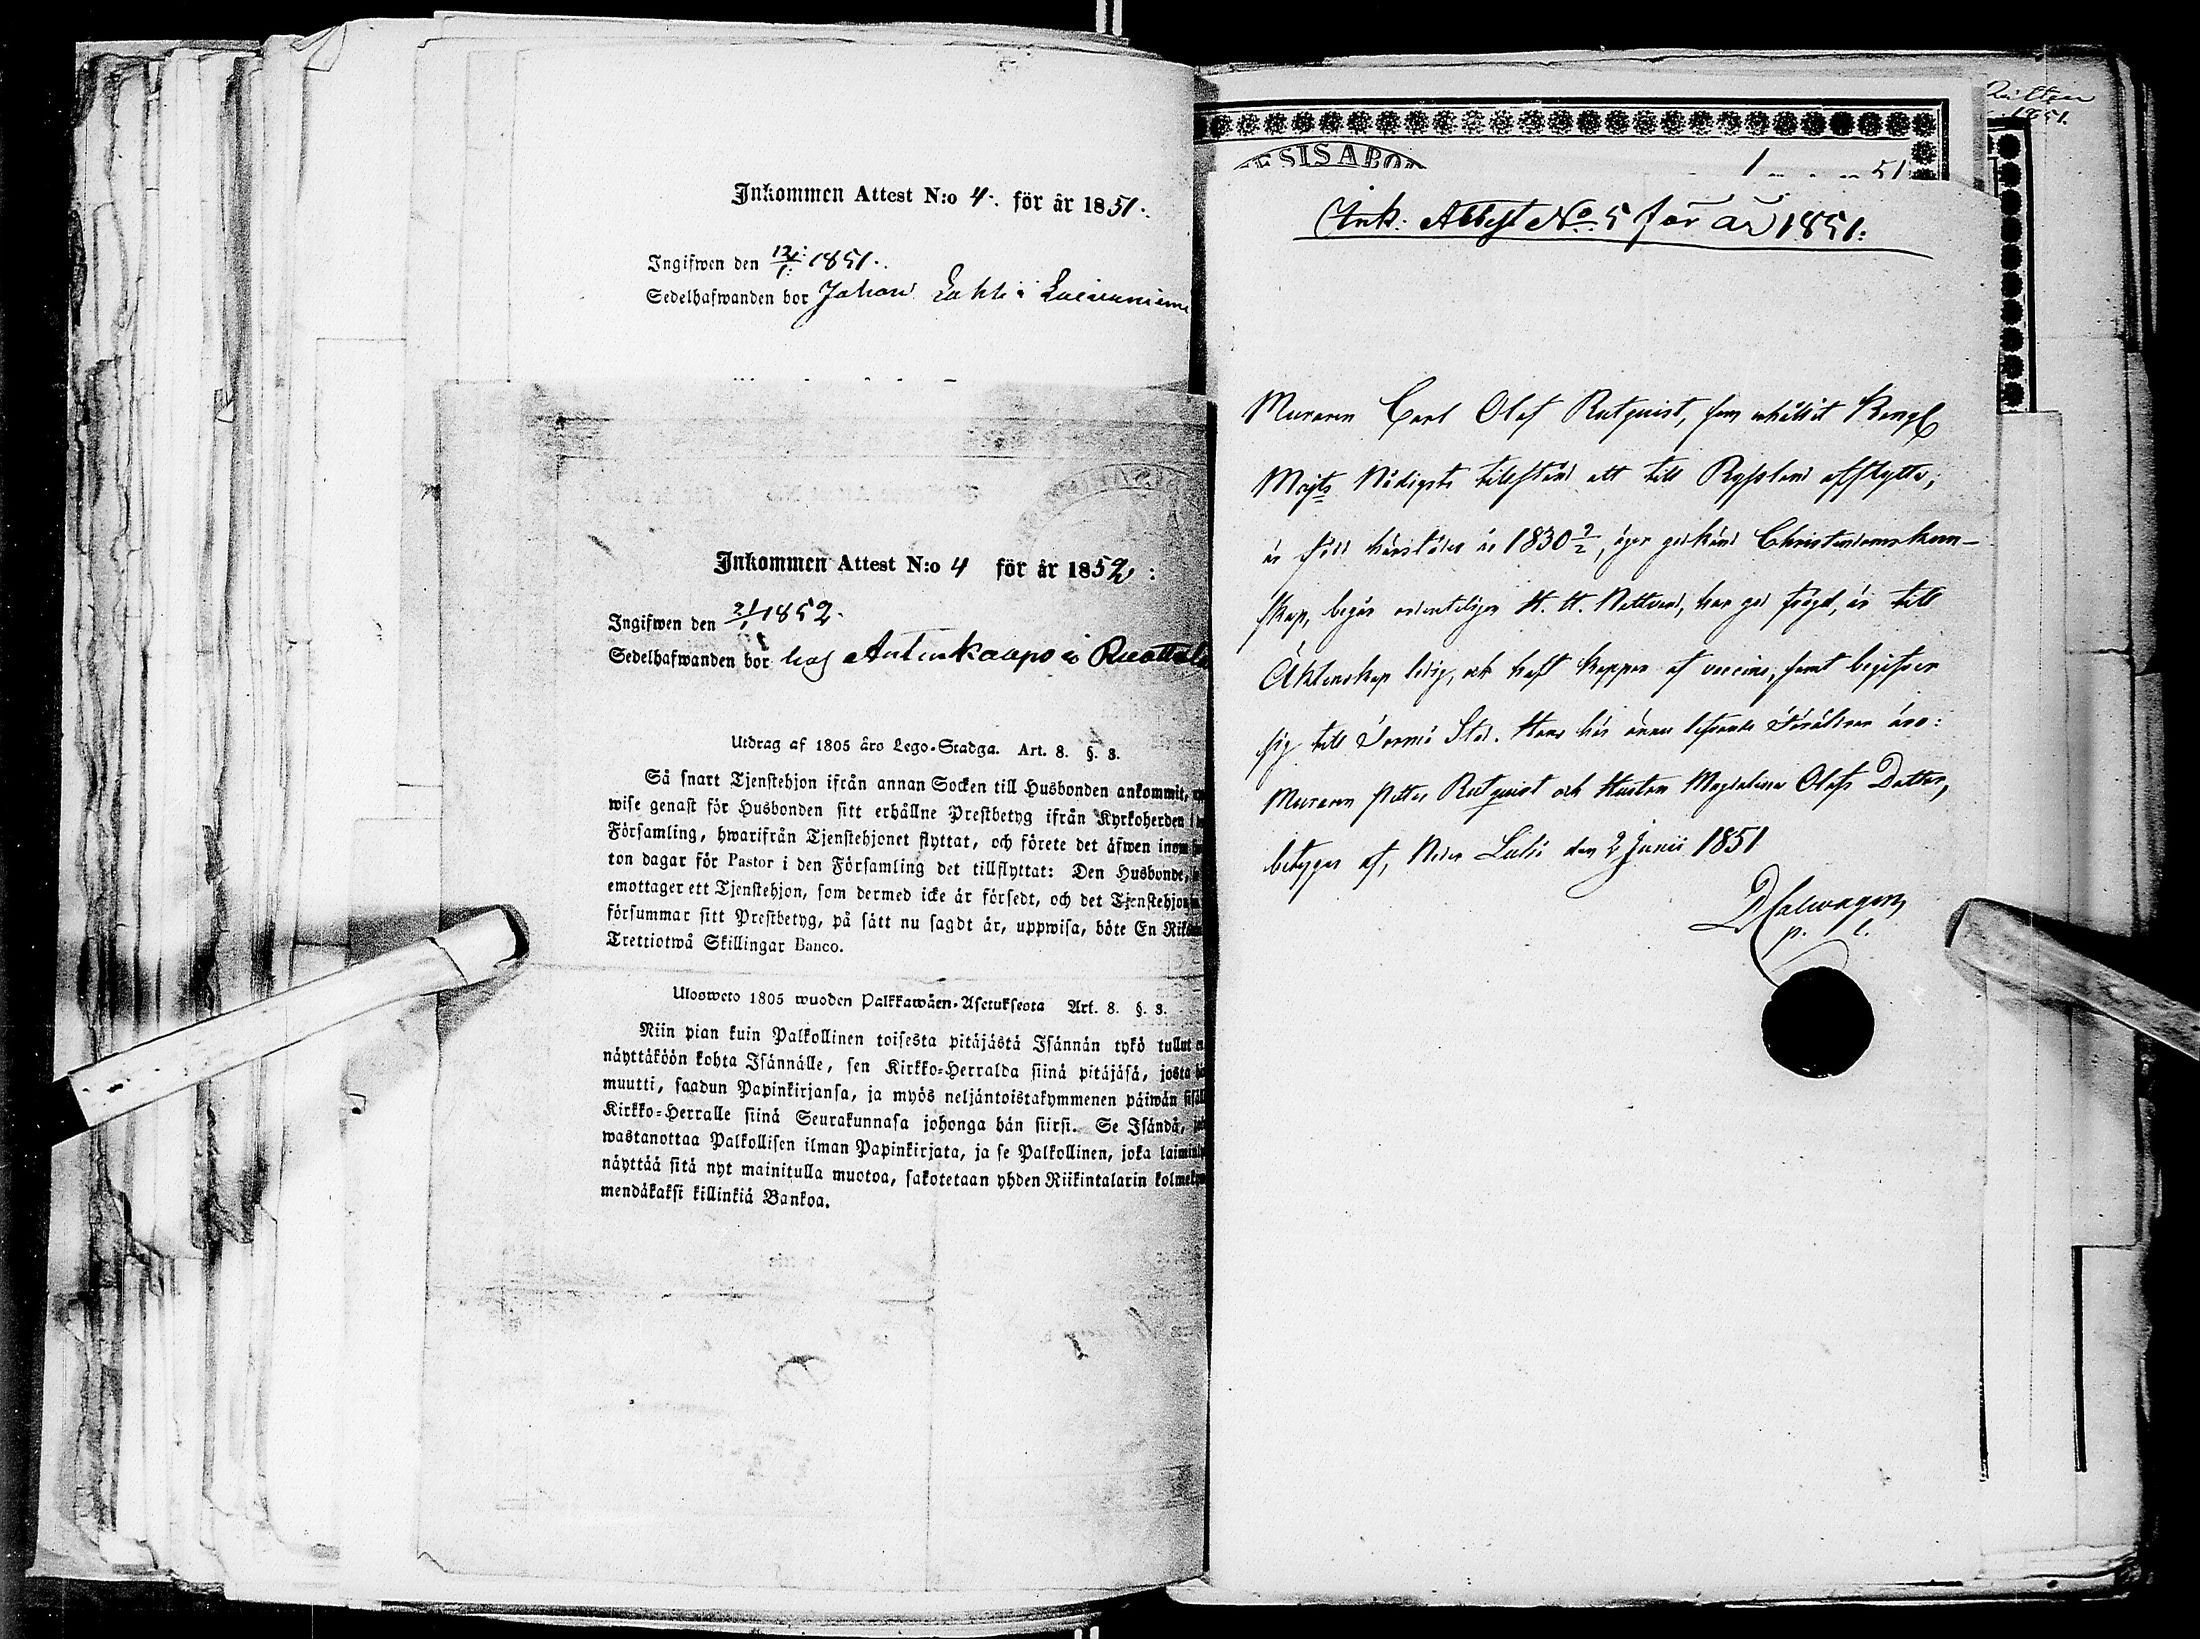 Inkommen Attest N:o 4. för år 1851.
Ingifwen den 12/1 1851.
Sedelhafwanden bor Johan Lahti i
Inkommen Attest N:o 4 för år 1852:
Ingifwen den 21/1 1852.
Sedelhafwanden bor hos Antinkaapo i Ruottala
Utdrag af 1805 års Lego-Stadga. Art. 8. §. 3.
Så snart Tjenstehjon ifrån annan Socken till Husbonden ankommit,
wise genast för Husbonden sitt erhållne Prestbetyg ifrån Kyrkoherden i
Församling, hwarifrån Tjenstehjonet flyttat, och förete det äfwen inom
ton dagar för Pastor i den Församling det tillflyttat: Den Husbonde,
emottager ett Tjenstehjon, som dermed icke är försedt, och det Tjenstehjon
försummar sitt Prestbetyg, på sätt nu sagdt är, uppwisa, böte En Riks
Trettiotwå Skillingar Banco.
Ulosweto 1805 wuoden Palkkawäen-Asetuksesta Art. 8. §. 3.
Niin pian kuin Palkollinen toisesta pitäjästä Isännän tykö tullut
näyttäköön kohta Isännälle, sen Kirkko-Herralda siinä pitäjäsä, josta
muutti, saadun Papinkirjansa, ja myös neljäntoistakymmenen päiwän sisäl
Kirkko-Herralle siinä Seurakunnasa johonga hän siirsi. Se Isändä,
wastanottaa Palkollisen ilman Papinkirjata, ja se Palkollinen, joka laimin
näyttää sitä nyt mainitulla muotoa, sakotetaan yhden Riikintalarin kolme
mendäkaksi killinkiä Bankoa.
1851.
SISABO
51
Ink: Attest No. 5 för år 1851:
Muraren Carl Olof Rutquist, som erhållit Kongl
Majts Nådigste tillstånd att till Ryssland afflytta,
är född härstädes år 1830 2/2, äger godkänd Christendomskun-
skap, begår ordentligen H. H. Nattvard, har god frägd, är till
Äktenskap ledig, och haft koppor af vaccine, samt begifver
sig till Torneå Stad. Hans här ännu lefvande Föräldrar äro:
Muraren Petter Rutquist och Hustru Magdalena Olofs Dotter,
betygar af, Neder Luleå den 2 Junii 1851
p. l.